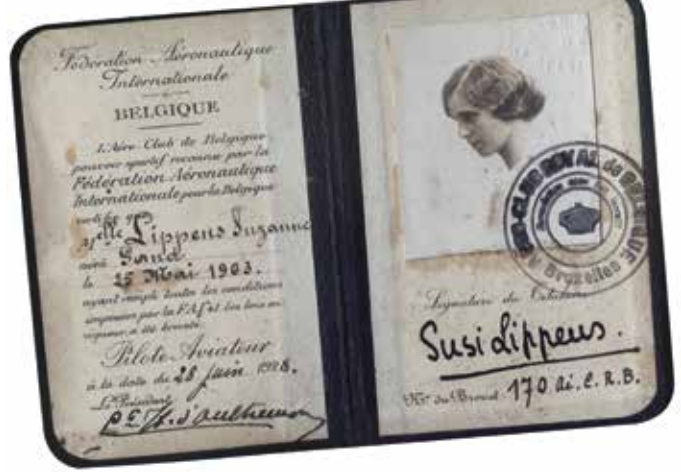 Fédération Aéronautique
Internationale
BELGIQUE
L'Aéro-Club de Belgique
pouvoir sportif reconnu par la
Fédération Aéronautique
Internationale pour la Belgique
certifie que
Melle Lippens Suzanne
né à Gand
le 25 Mai 1903.
ayant rempli toutes les conditions
imposées par la F.A.I. et des lois en
vigueur a été breveté
Pilote-Aviateur
à la date du 28 juin 1928.
Le Président
AERO-CLUB ROYAL de BELGIQUE
Bruxelles
Signature du Titulaire
Susi Lippens.
No du Brevet 170 Aé. C. R. B.